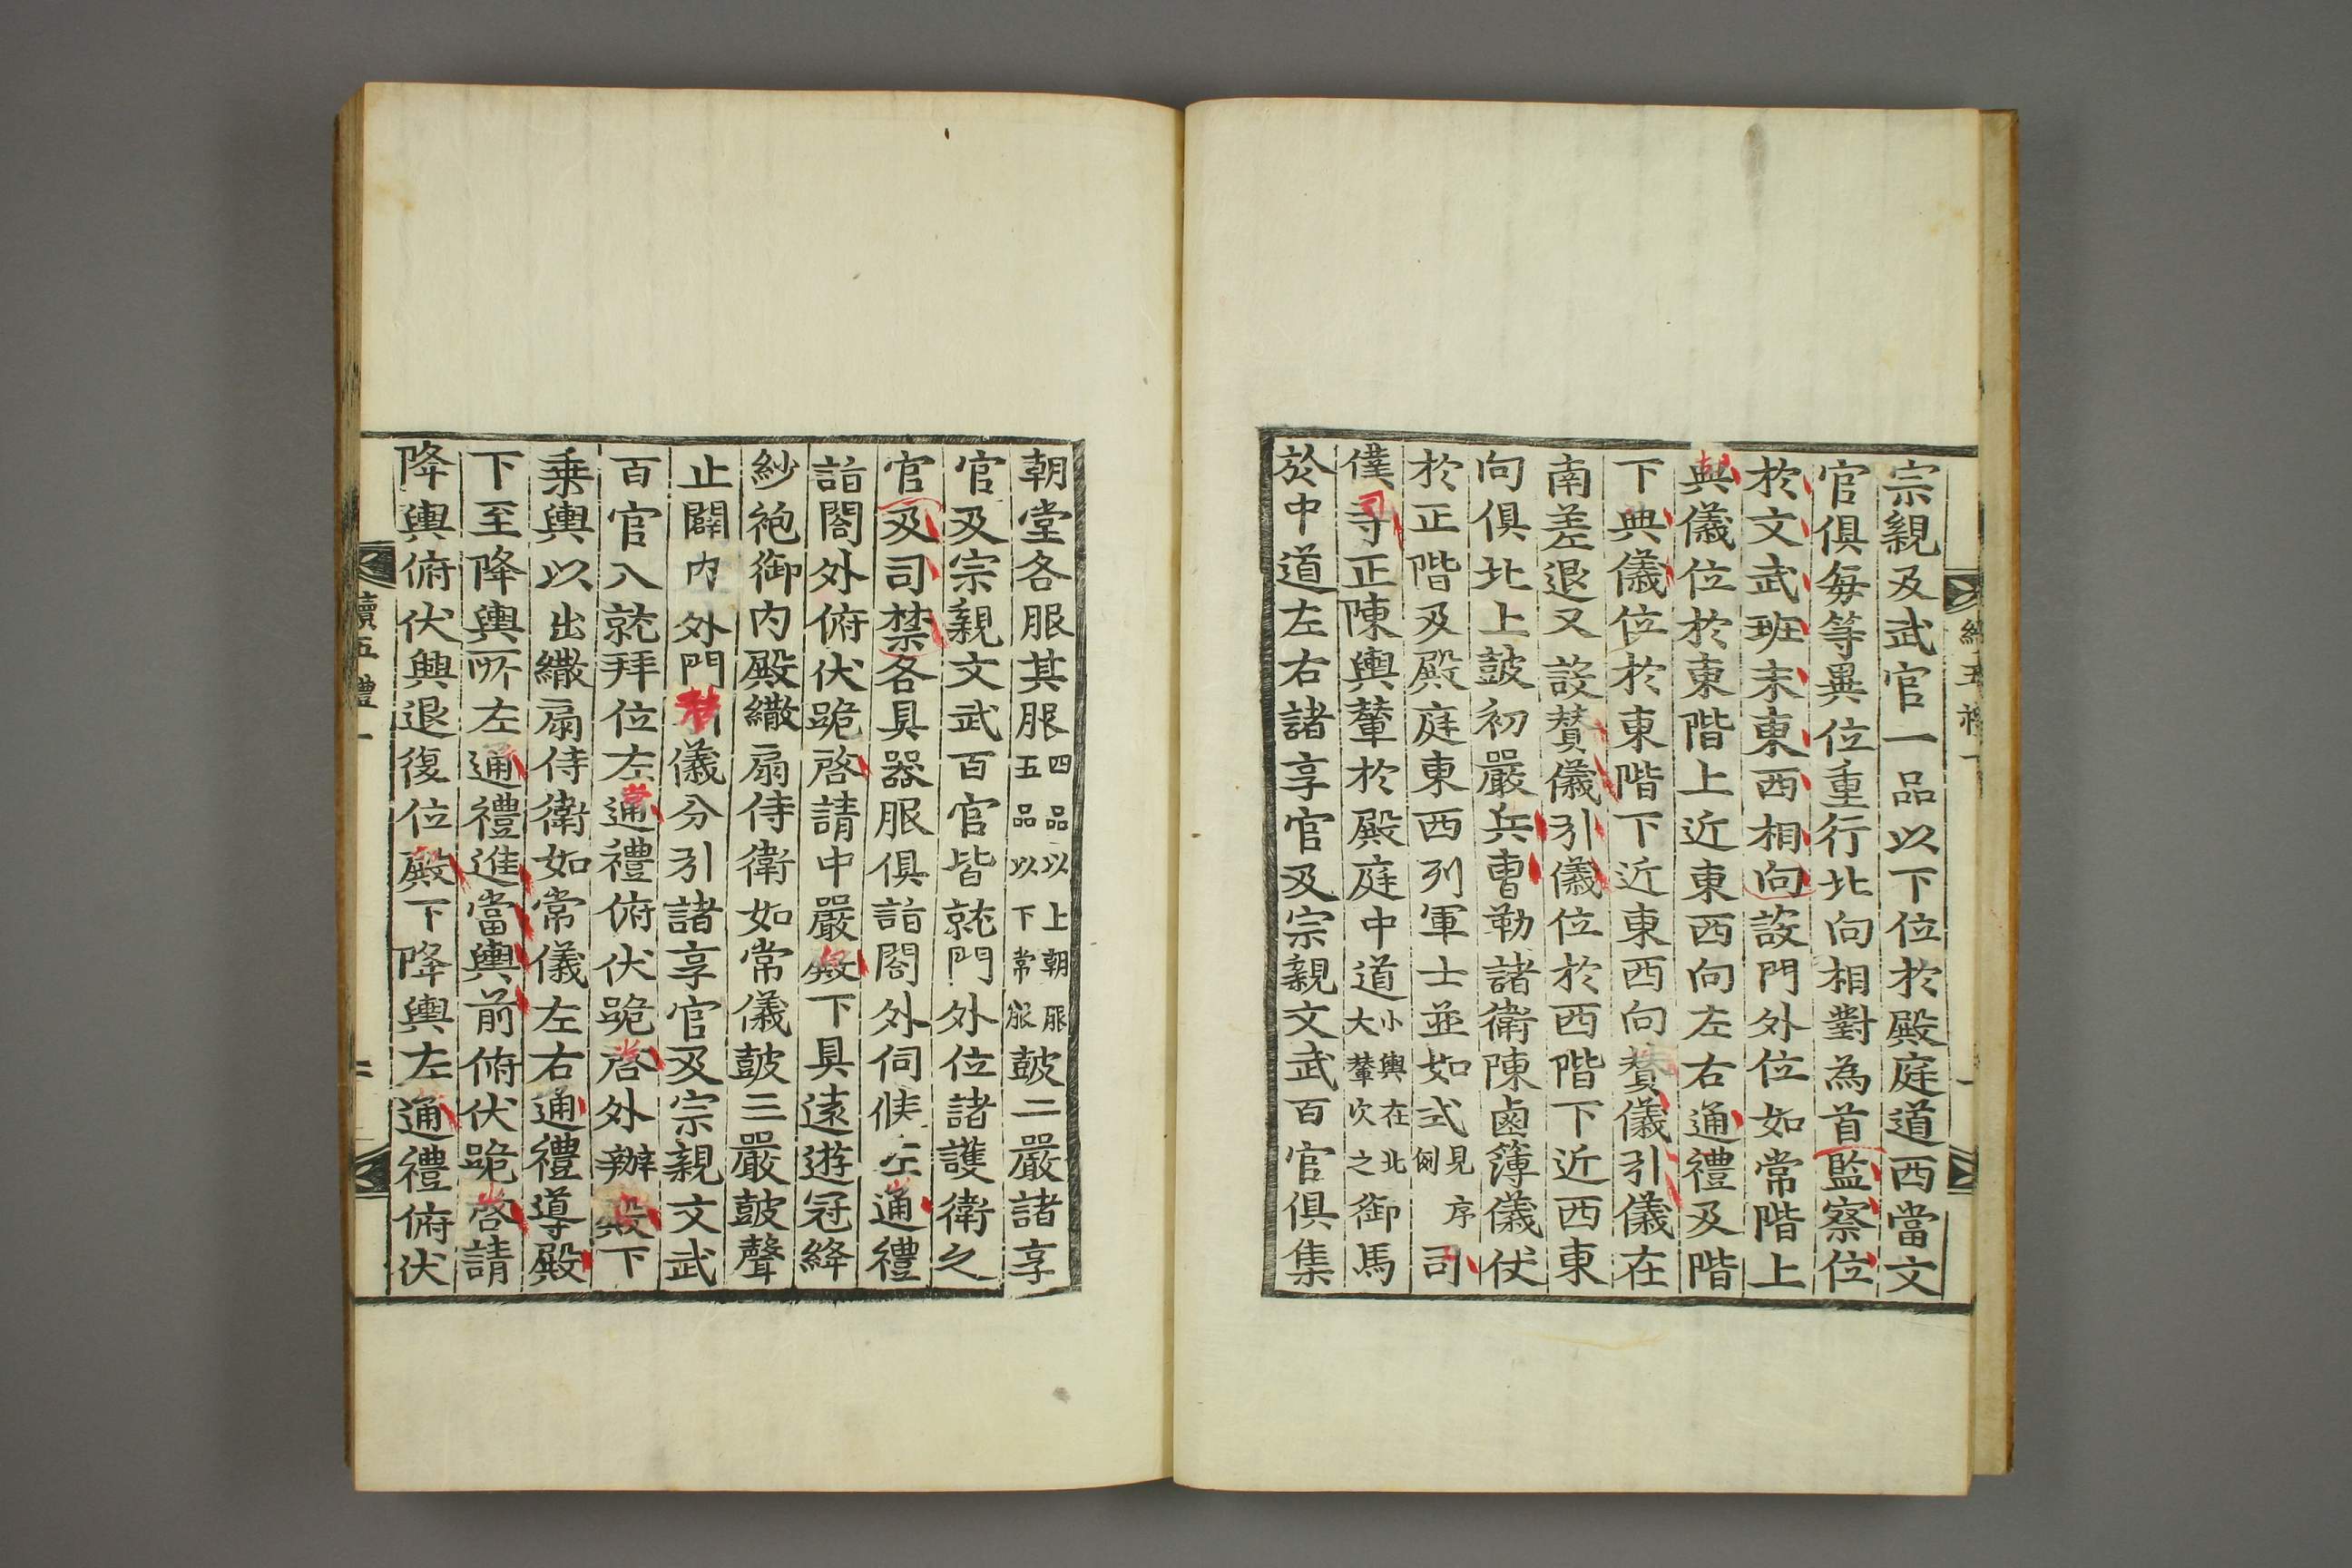 宗親及武官一品以下位於殿庭道西當文
官俱每等異位重行北向相對為首監察位
於文武班末東西相向設門外位如常階上
典儀位於東階上近東西向左右通禮及階
下典儀位於東階下近東西向贊儀引儀在
南差退又設贊儀引儀位於西階下近西東
向俱北上鼓初嚴兵曹勒諸衛陳鹵簿儀仗
於正階及殿庭東西列軍士並如式見序例司
僕寺正陳輿輦於殿庭中道小輿在北大輦次之御馬
於中道左右諸享官及宗親文武百官俱集
朝堂各服其服四品以上朝服五品以下常服鼓二嚴諸享
官及宗親文武百官皆就門外位諸護衛之
官及司禁各具器服俱詣閤外伺候左通禮
詣閤外俯伏跪啓請中嚴殿下具遠遊冠絳
紗袍御內殿繖扇侍衛如常儀鼓三嚴鼓聲
止闢內外門儀分引諸享官及宗親文武
百官入就拜位左通禮俯伏跪啓外辦殿下
乘輿以出繖扇侍衛如常儀左右通禮導殿
下至降輿所左通禮進當輿前俯伏跪啓請
降輿俯伏興退復位殿下降輿左通禮俯伏
續五禮一
二